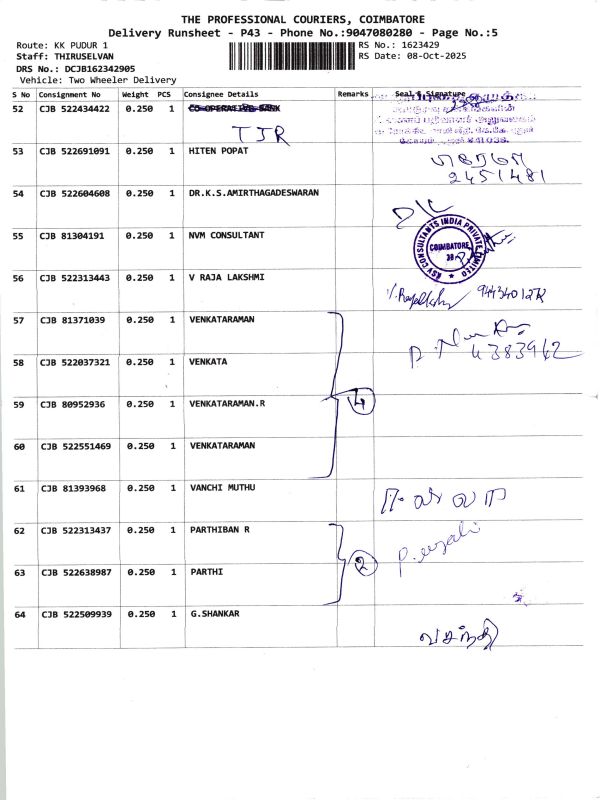 THE PROFESSIONAL COURIERS, COIMBATORE
Delivery Runsheet - P43 - Phone No.:9047080280 - Page No.:5
Route: KK PUDUR 1 RS No.: 1623429
Staff: THIRUSELVAN RS Date: 08-Oct-2025
DRS No.: DCJB162342905
Vehicle: Two Wheeler Delivery
S No Consignment No Weight PCS Consignee Details Remarks Seal & Signature
52 CJB 522434422 0.250 1 CO OPERATIVE BANK
TJR
53 CJB 522691091 0.250 1 HITEN POPAT
2451481
54 CJB 522604608 0.250 1 DR.K.S.AMIRTHAGADESWARAN
D/C
55 CJB 81304191 0.250 1 NVM CONSULTANT
KSV CONSULTANTS INDIA PRIVATE LIMITED
COIMBATORE
38
56 CJB 522313443 0.250 1 V RAJA LAKSHMI
57 CJB 81371039 0.250 1 VENKATARAMAN
4383962
58 CJB 522037321 0.250 1 VENKATA
59 CJB 80952936 0.250 1 VENKATARAMAN.R
4
60 CJB 522551469 0.250 1 VENKATARAMAN
61 CJB 81393968 0.250 1 VANCHI MUTHU
62 CJB 522313437 0.250 1 PARTHIBAN R
2
63 CJB 522638987 0.250 1 PARTHI
64 CJB 522509939 0.250 1 G.SHANKAR
வசந்தி